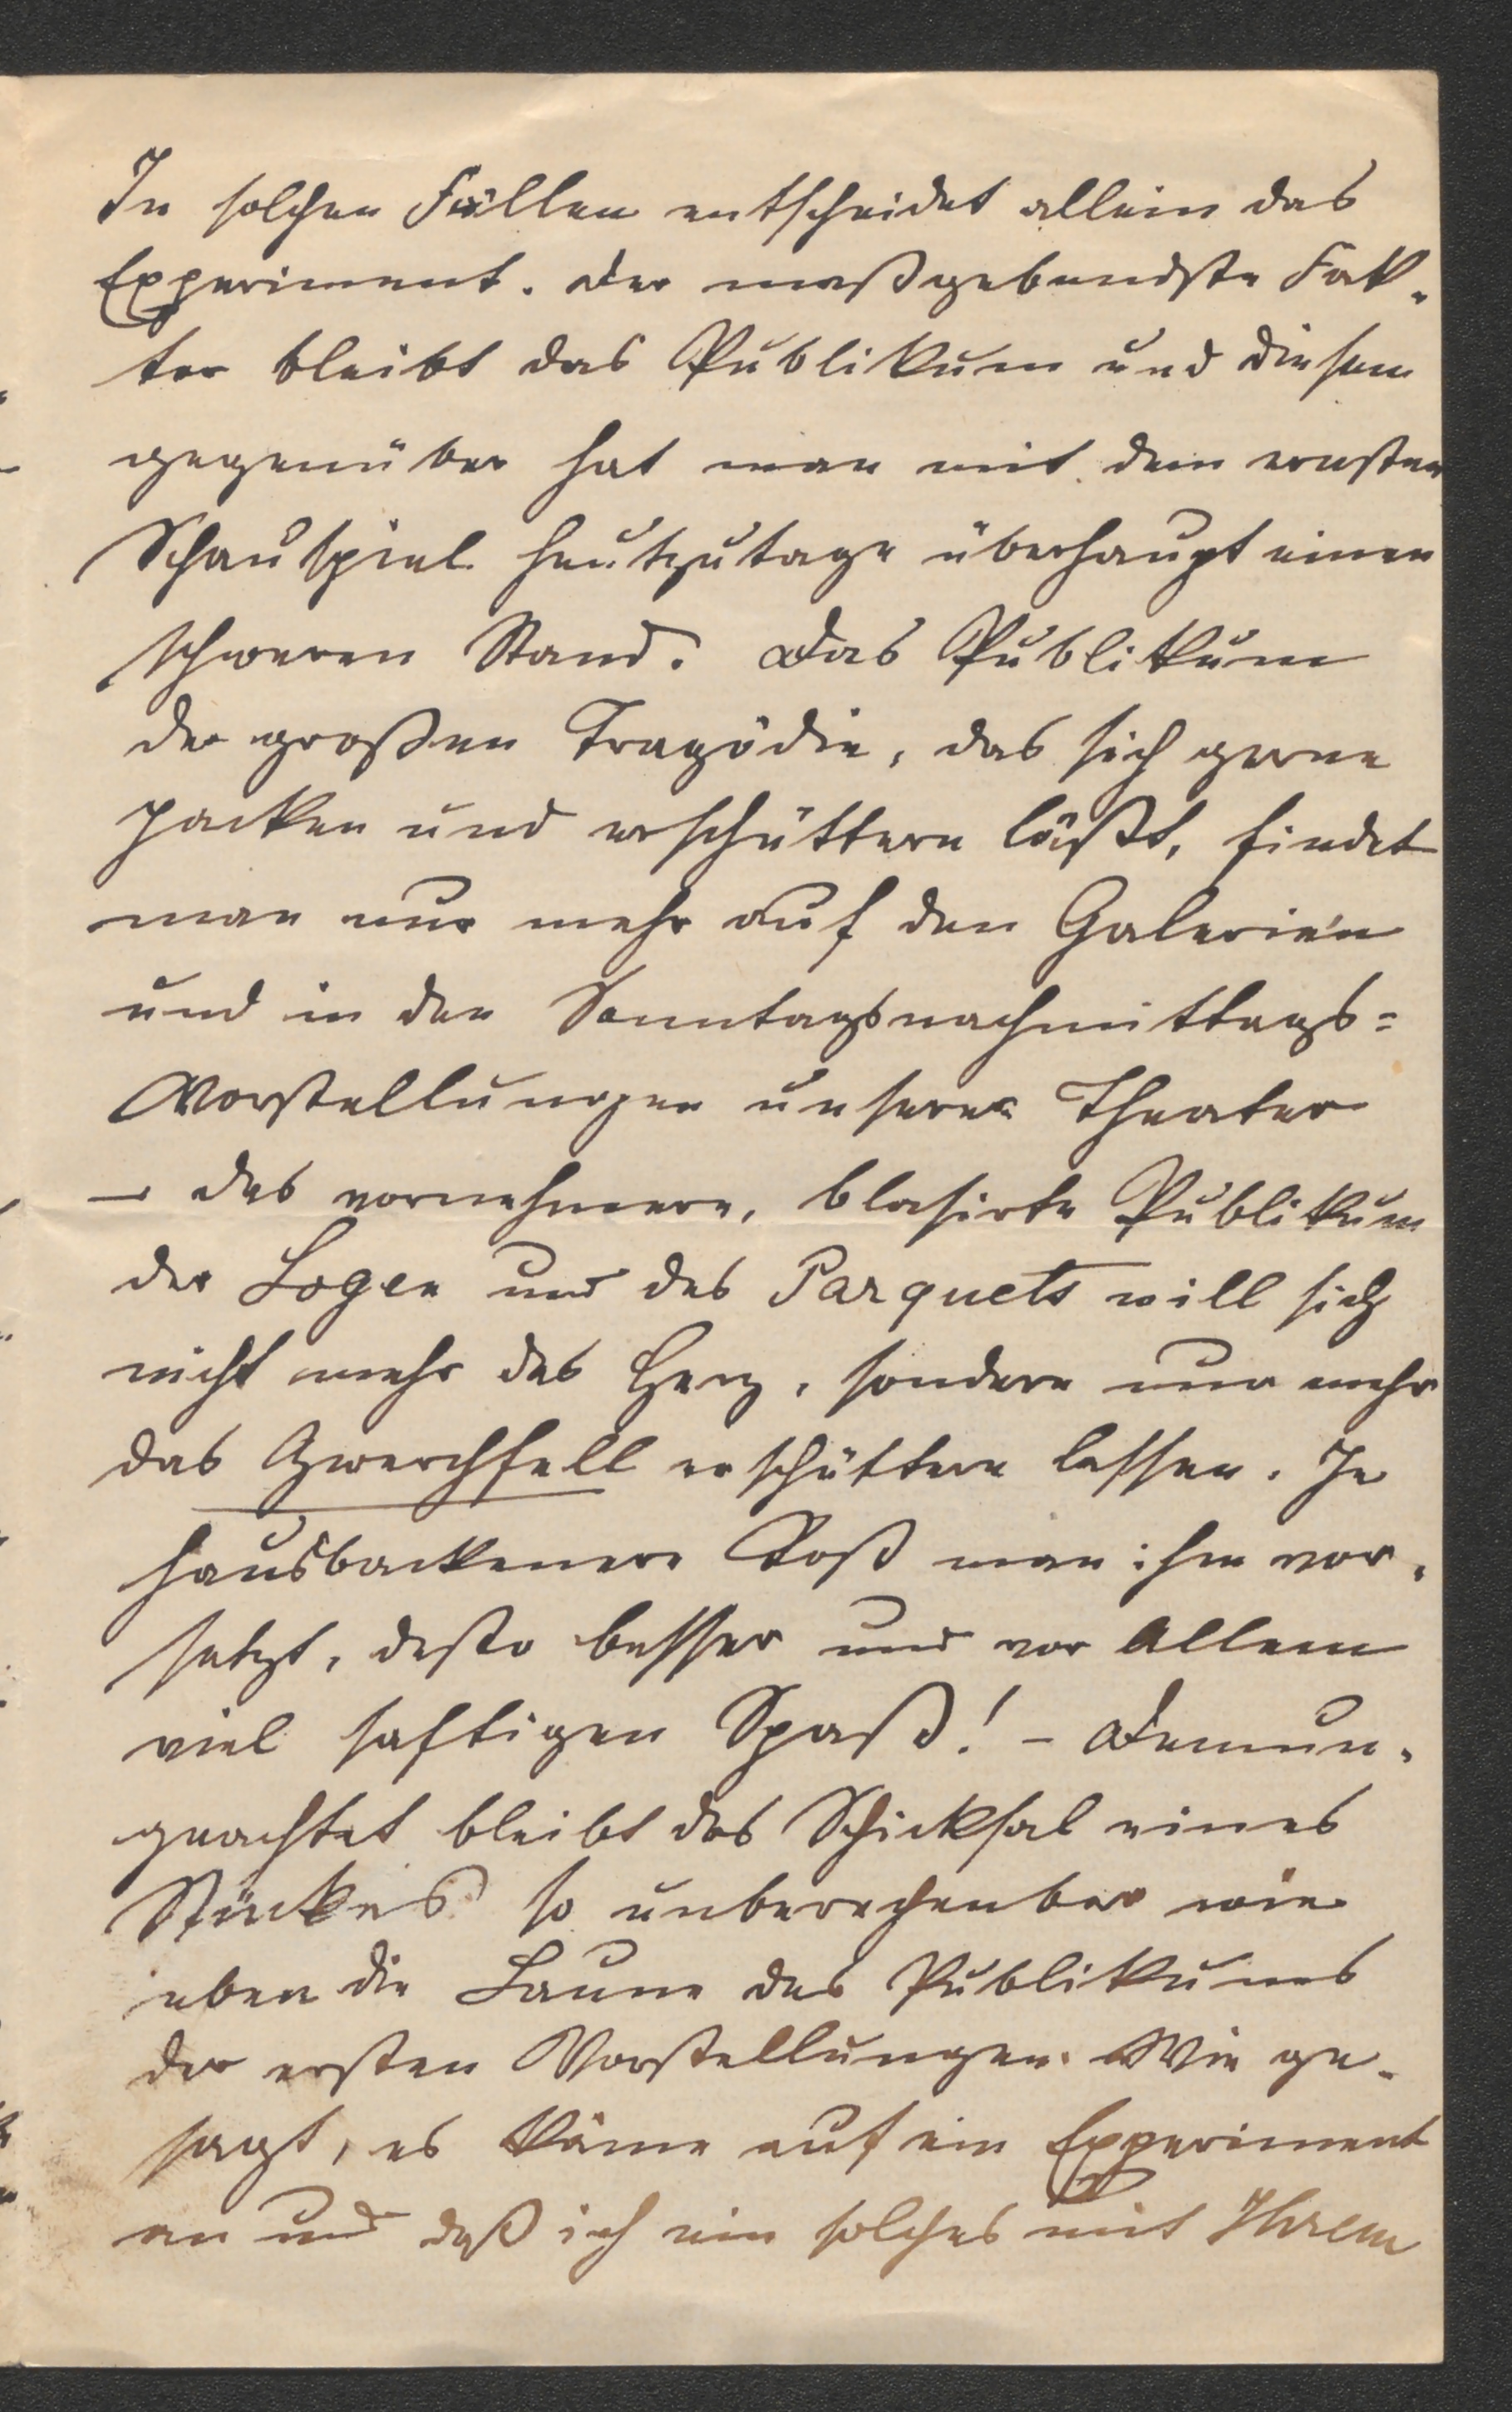 In solchen Fällen entscheidet allein das
Experiment. Der maßgebendste Fak-
tor bleibt das Publikum und diesem
gegenüber hat man mit dem ernsten
Schauspiel heutzutage überhaupt einen
schweren Stand. Das Publikum
der großen Tragödie, das sich gerne
packen und erschüttern läßt, findet
man nur mehr auf den Galerien
und in den Sonntagsnachmittags=
Vorstellungen unserer Theater
– das vornehmere, blasirte Publikum
der Logen und des Parquets will sich
nicht mehr das Herz, sondern nur mehr
das Zwerchfell erschüttern lassen. Je
hausbackenere Kost man ihm vor-
setzt, desto besser und vor Allem
viel saftigen Spaß! – Demun-
geachtet bleibt das Schicksal eines
Stückes so unberechenbar wie
eben die Laune des Publikums
der ersten Vorstellungen. Wie ge-
sagt, es käme auf ein Experiment
an und daß ich ein solches mit Ihrem